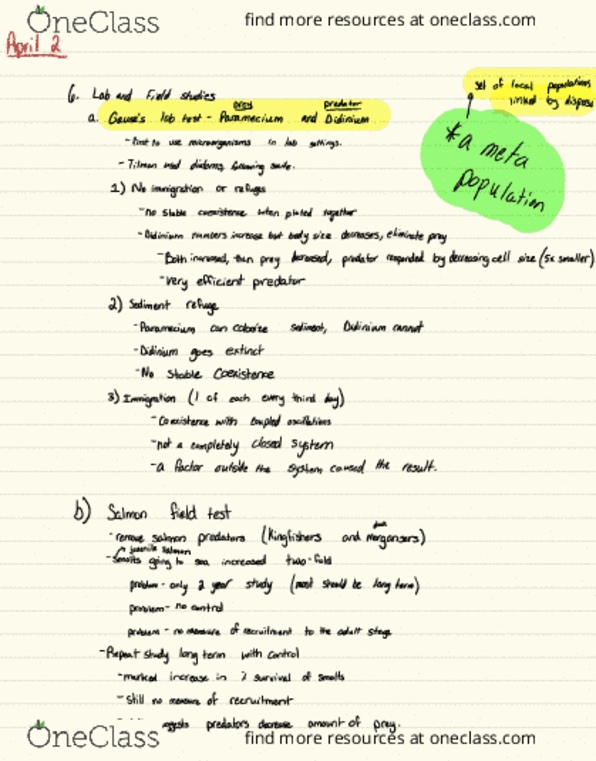 OneClass
find more resources at oneclass.com
April 2
set of local populations
linked by dispers
*a meta
population
6. Lab and Field studies
prey predator
a. Gause's lab test - Paramecium and Didinium
- First to use microorganisms in lab settings.
- Tilman used diatoms, following suite.
1) No immigration or refuges
- no stable coexistence when plated together
- Didinium numbers increase but body size decreases, eliminate prey
- Both increased, then prey decreased, predator responded by decreasing cell size (5x smaller)
- very efficient predator
2) Sediment refuge
- Paramecium can colonize sediment, Didinium cannot
- Didinium goes extinct
- No Stable Coexistence
3) Immigration (1 of each every third day)
- Coexistence with coupled oscillations
- not a completely closed system
- a factor outside the system caused the result.
b) Salmon field test
- remove salmon predators (Kingfishers and Mergansers)
juvenile salmon
- Smolts going to sea increased two-fold
problem - only 2 year study (most should be long term)
problem - no control
problem - no measure of recruitment to the adult stage
- Repeat study long term with control
- marked increase in survival of smolts
- still no measure of recruitment
predators decrease amount of prey.
OneClass
find more resources at oneclass.com